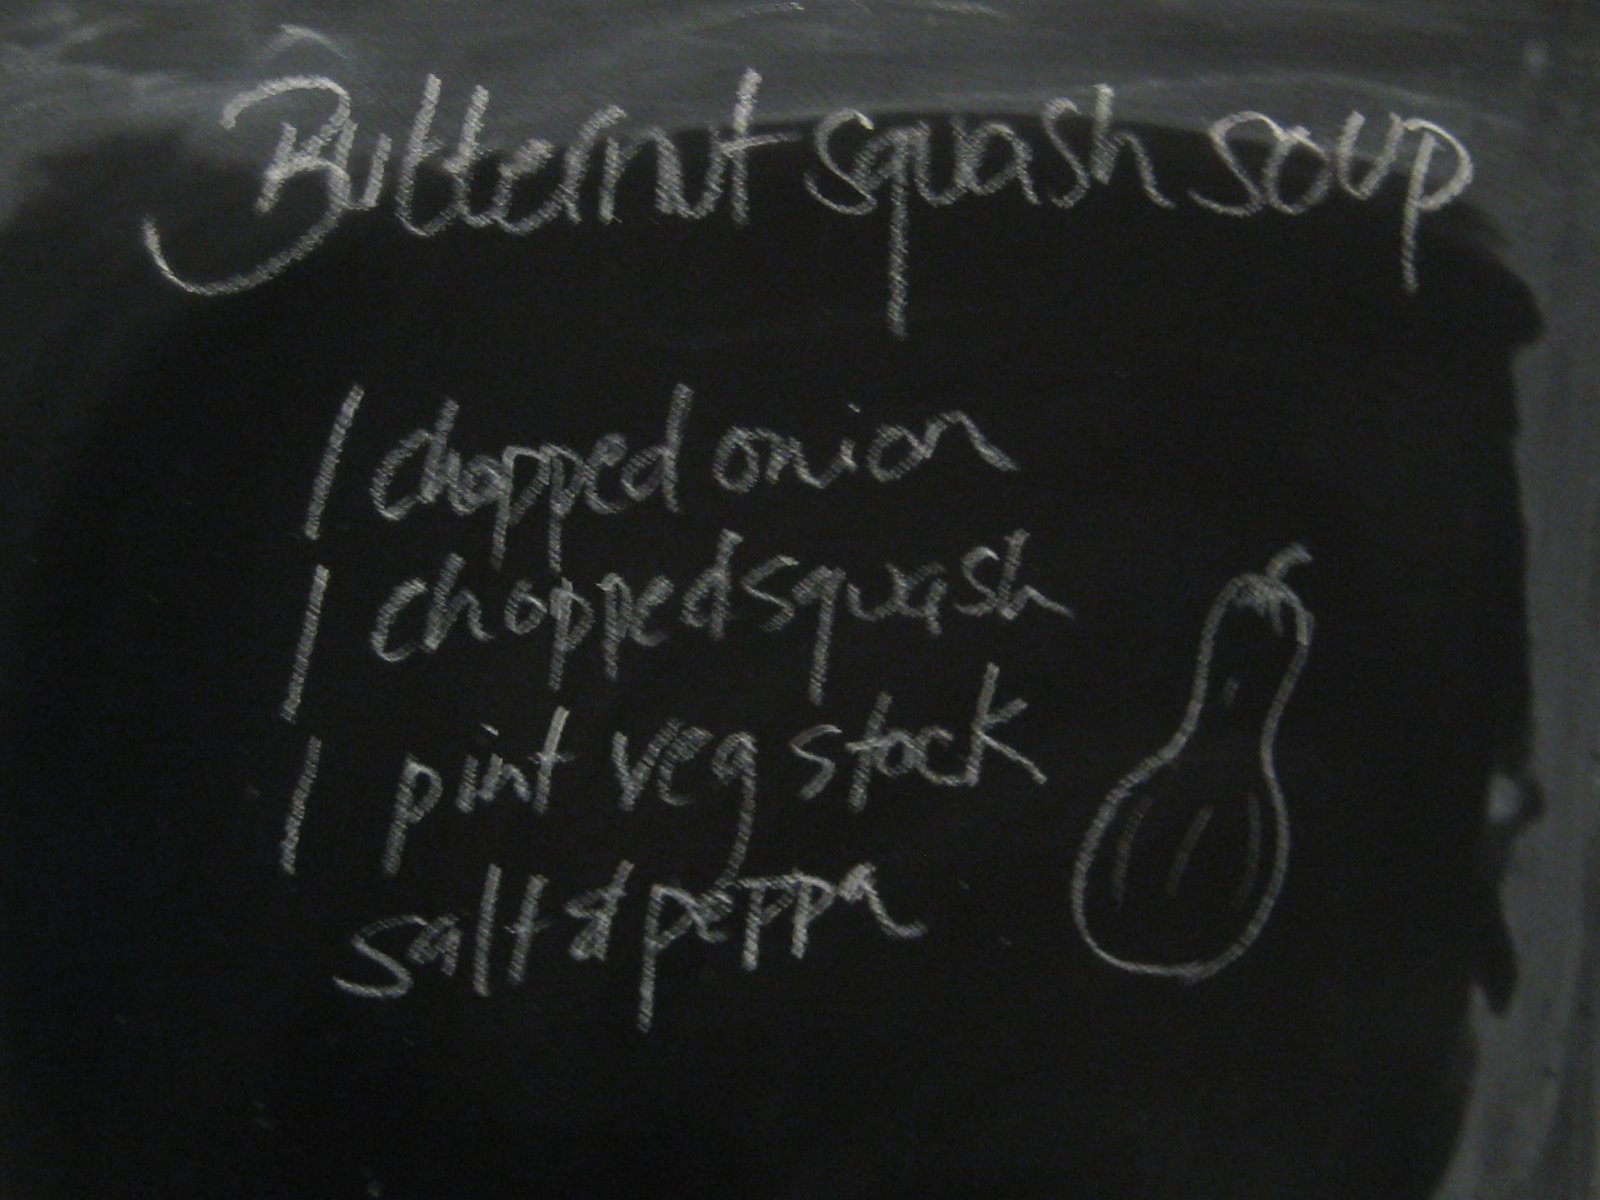 Butternut squash soup
1 chopped onion
1 chopped squash
1 pint veg stock
salt & peppa